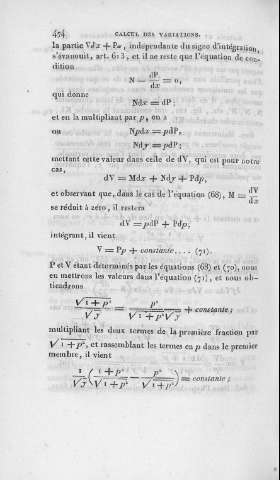 474 CALCUL DES VARIATIONS.
la partie Vdx + Pω, indépendante du signe d'intégration,
s'évanouit, art. 613, et il ne reste que l'équation de con-
dition
N − dP/dx = 0,
qui donne
Ndx = dP;
et en la multipliant par p, on a
ou Npdx = pdP,
Ndy = pdP;
mettant cette valeur dans celle de dV, qui est pour notre
cas,
dV = Mdx + Ndy + Pdp,
et observant que, dans le cas de l'équation (68), M = dV/dx
se réduit à zéro, il restera
dV = pdP + Pdp,
intégrant, il vient
V = Pp + constante.... (71).
P et V étant déterminés par les équations (68) et (70), nous
en mettrons les valeurs dans l'équation (71), et nous ob-
tiendrons
√(1 + p²)/√y = p²/(√(1 + p²)√y) + constante;
multipliant les deux termes de la première fraction par
√(1 + p²), et rassemblant les termes en p dans le premier
membre, il vient
1/√y ((1 + p²)/√(1 + p²) − p²/√(1 + p²)) = constante;